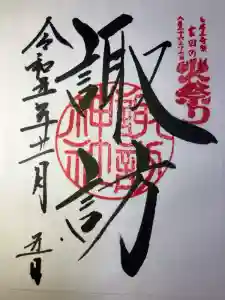 吉田の
火祭り
諏訪
諏訪
神社
令和五年十一月
五日